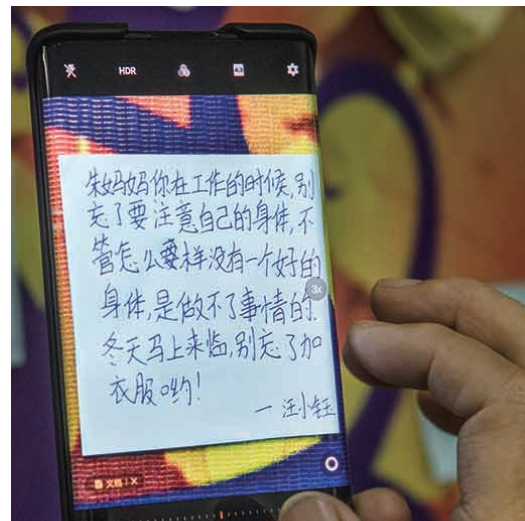 HDR
4:3
朱妈妈你在工作的时候,别
忘了要注意自己的身体,不
管怎么要样没有一个好的
身体,是做不了事情的.
3x
冬天马上来临,别忘了加
衣服哟!
一汪小钰
文档 | X